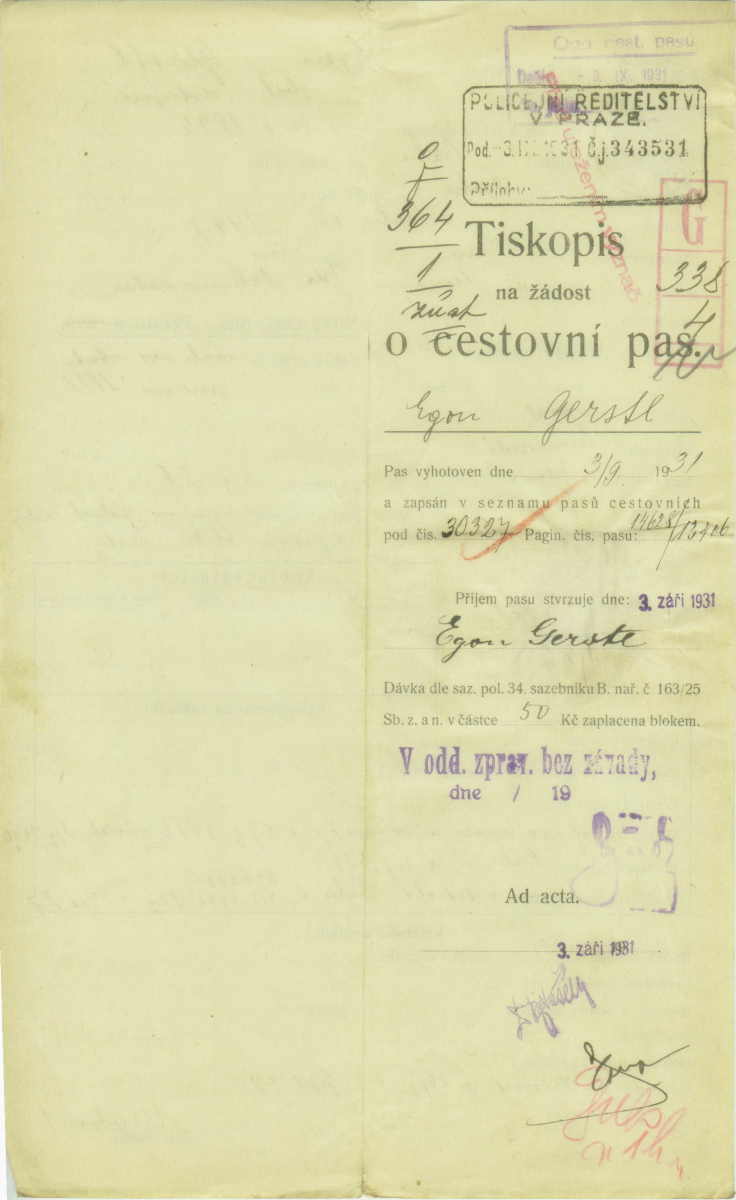 Odd. cest. pasů
Došlo - 3. IX. 1931
POLICEJNÍ ŘEDITELSTVÍ
V PRAZE.
Pod. - 3. IX. 1931 Č.j. 343531
Přílohy:
G
364
1
338
4
Tiskopis
na žádost
o cestovní pas.
Egon Gerstl
Pas vyhotoven dne 3/9. 1931
a zapsán v seznamu pasů cestovních
pod čís. 30327 Pagin. čís. pasu: 14628/13406
Příjem pasu stvrzuje dne: 3. září 1931
Egon Gerstl
Dávka dle saz. pol. 34. sazebníku B. nař. č 163/25
Sb. z. a n. v částce 50 Kč zaplacena blokem.
V odd. zprav. bez závady,
dne / 19
Ad acta.
3. září 1931